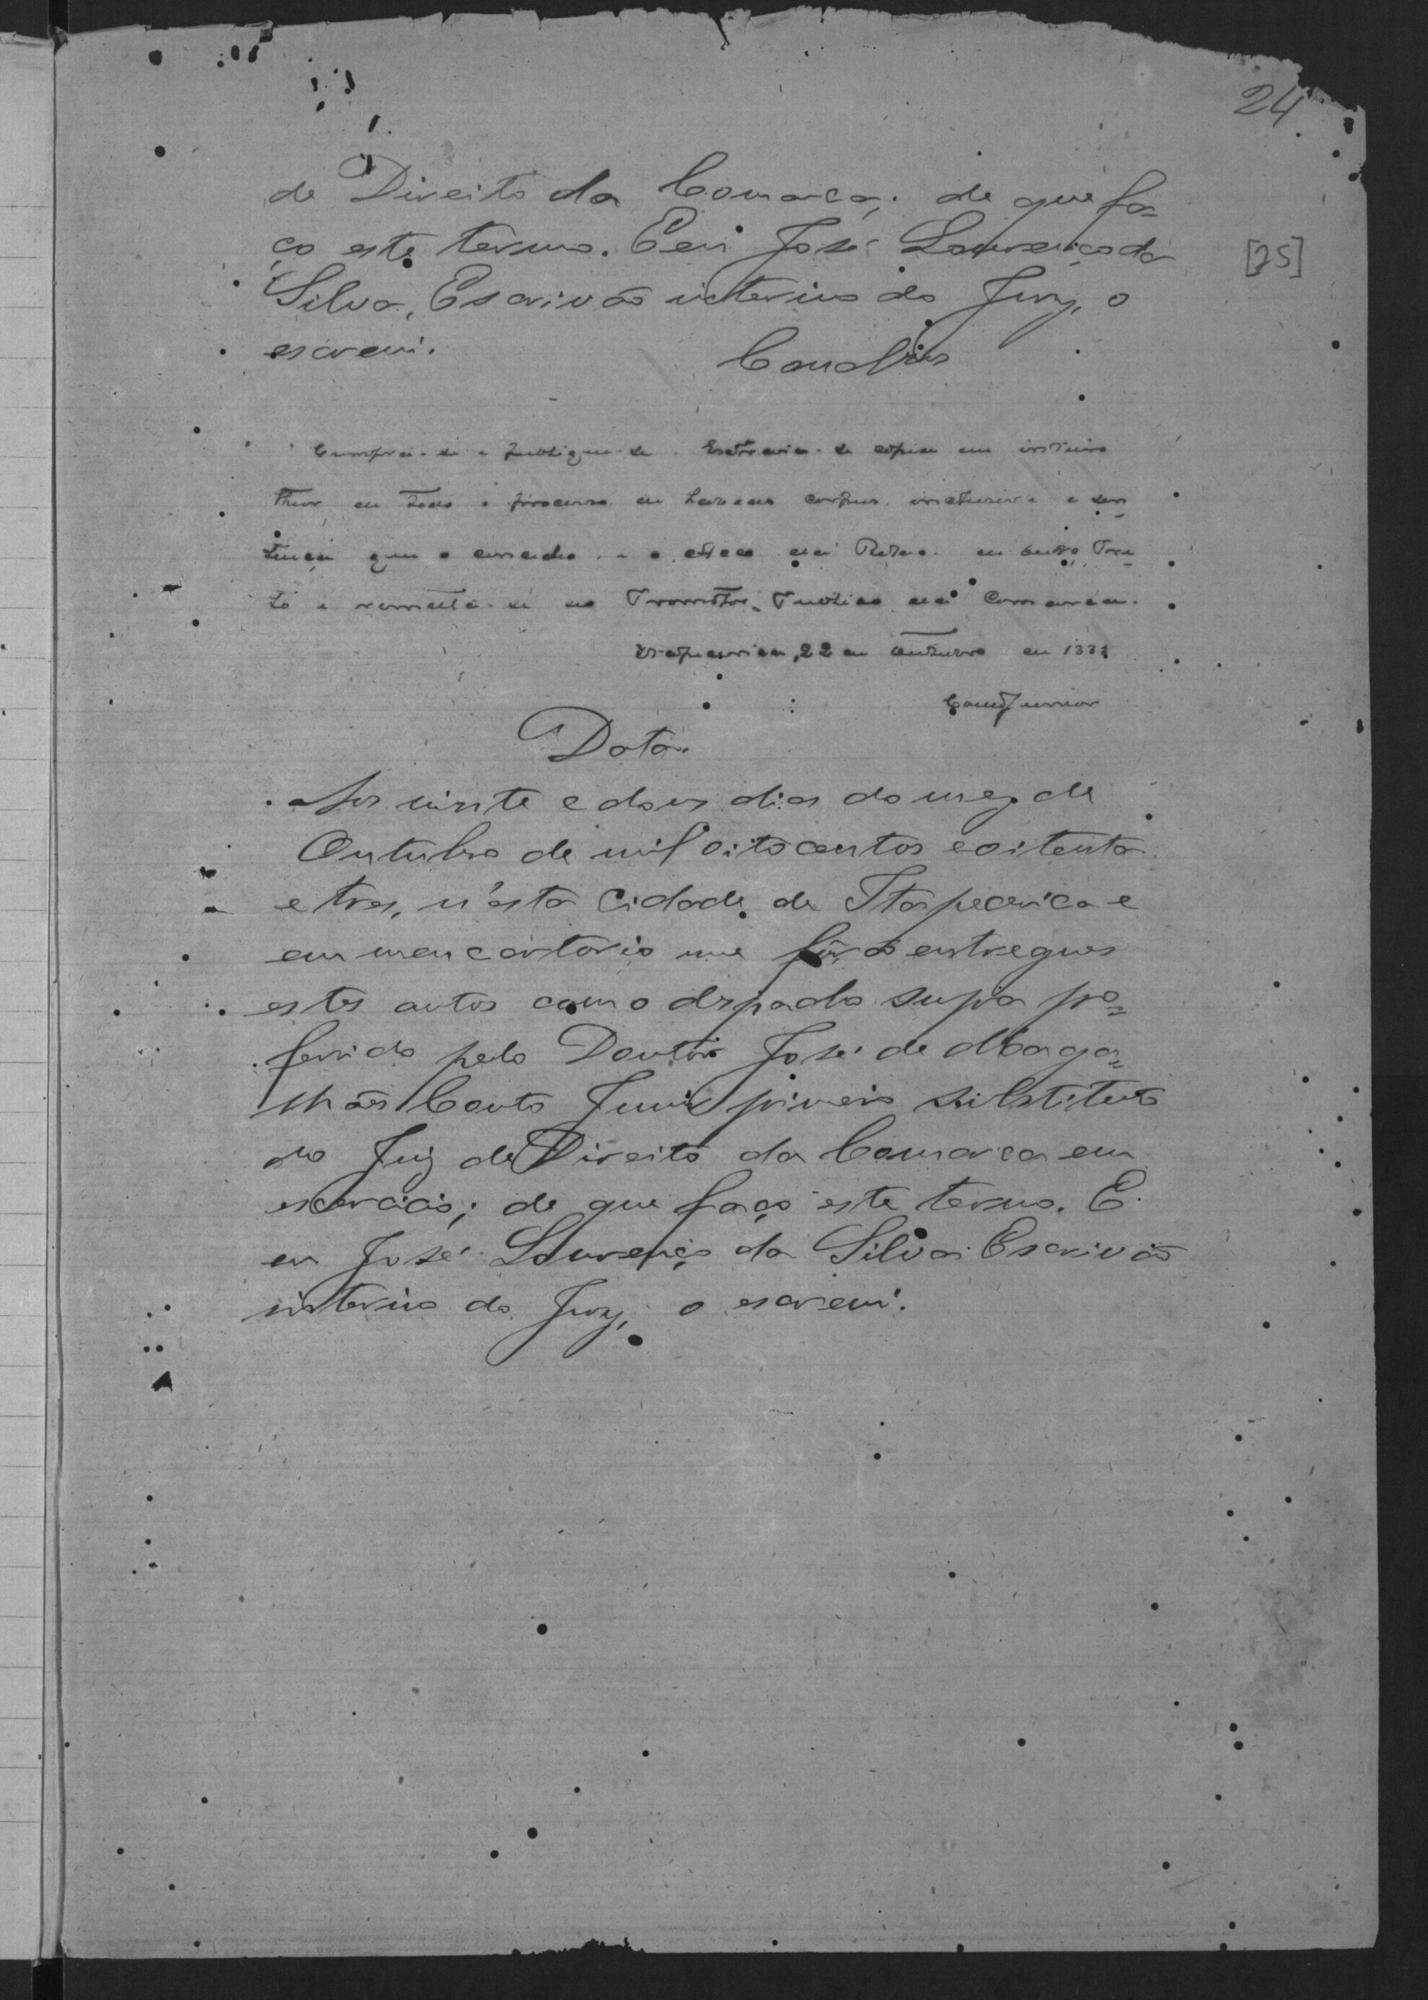 24
de Direito da Comarca; de que fa=
ço este termo. E eu José Lourenço da
[25]
Silva, Escrivão interino do Jury, o
escrevi.
Cumpra-se e publique-se. Extraia-se copia em inteiro
theor de todo o processo de habeas corpus inclusive a sen=
tença que o concedeo e o
to e remetta-se ao Promotor Publico da Comarca.
Itapecerica, 22 de Outubro de 1883
Couto Junior
Data.
Aos vinte e dous dias do mez de
Outubro de mil oitocentos e oitenta
e tres, n'esta Cidade de Itapecerica e
em meu cartorio me forão entregues
estes autos com o despacho supra pro=
ferido pelo Doutor José de Maga=
lhães Couto Junior primeiro substituto
do Juiz de Direito da Comarca em
exercicio; de que faço este termo. E
eu José Lourenço da Silva Escrivão
interino do Jury, o escrevi.